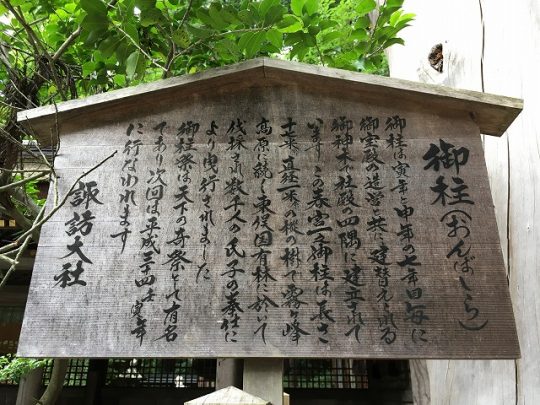 御柱(おんばしら)
御柱は寅年と申年の七年目毎に
御宝殿の造営と共に建替えられる
御神木で社殿の四隅に建立されて
います この春宮一之御柱は長さ
十七米、直径一米の樅の樹で霧ヶ峰
高原に続く東俣国有林に於いて
伐採され数千人の氏子の奉仕に
より曳行されました
御柱祭は天下の奇祭として有名
であり次回は平成三十四年 寅年
に行なわれます
諏訪大社